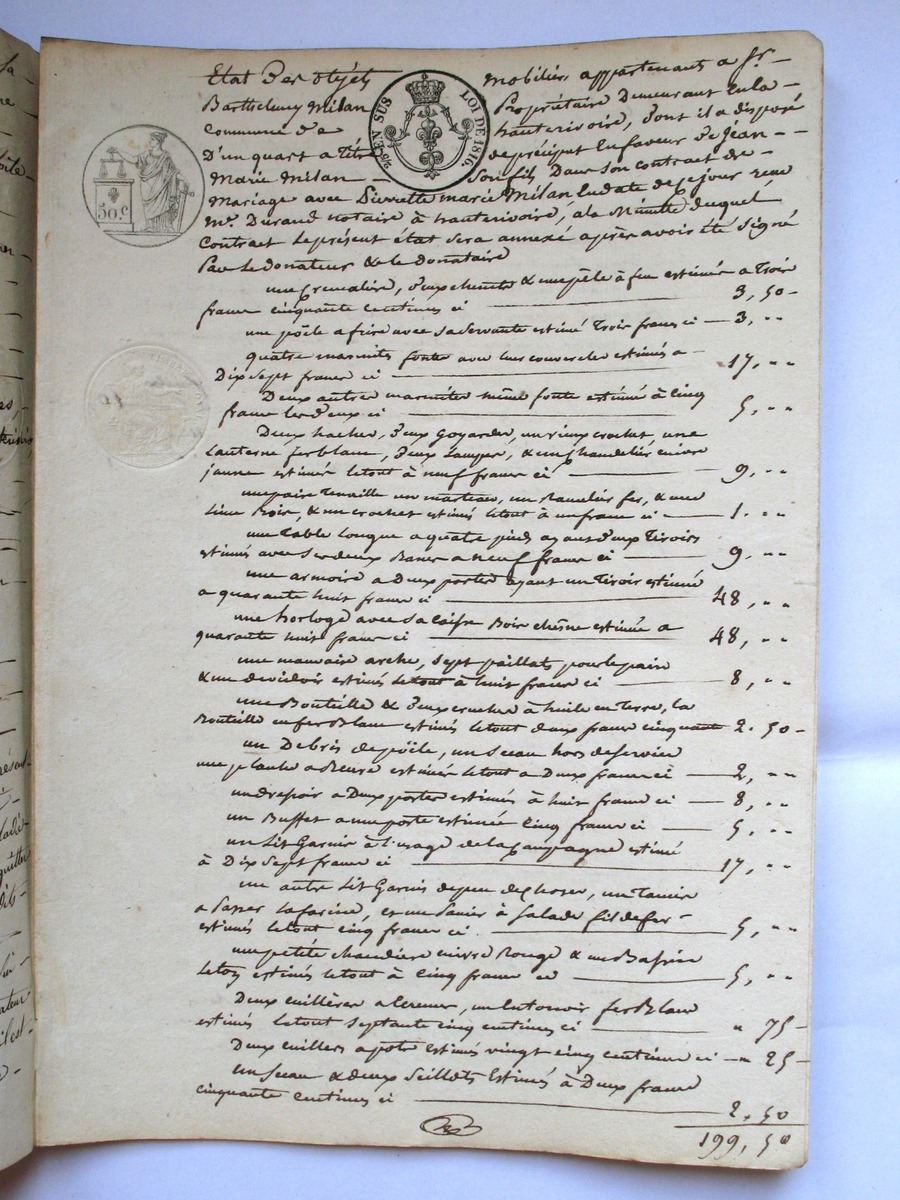 Etat des objets mobiliers appartenants a Sr.
Barthelmy Milan Propriétaire Demeurant En la
Commune d'e hauterivoire, dont il a disposé
D'un quart a titre de préciput En faveur de Jean
Marie Milan Son fils Dans Son contract de
Mariage avec Pierrette marie Milan En date de ce jour reçu
Me. Durand notaire à hauterivoire, a la Minutte duquel
Contract le présent état sera annexé après avoir été signé
Par le donateur & le donataire
une Cremaliere, deux chenets & une pêle à feu estimés a Trois
francs cinquante centimes ci 3, 50
une poële a frire avec sa servante estimé Trois francs ci 3, "
quatre marmites fonte avec leurs couvercles estimés a
Dix sept francs ci 17, "
Deux autres marmites même fonte estimé à cinq
francs les deux ci 5, "
Deux haches, deux Goyardes, un vieux crochet, une
Lanterne fer blanc, deux Lampes, & un chandelier cuivre
jaune estimés le tout à neuf francs ci 9, "
une paire Tenaille un marteau, un fer, & une
Bois, & un crochet estimés le tout à un franc ci 1. "
une Table Longue a quatre pieds ayant deux Tiroirs
estimés avec ses deux Bancs a neuf francs ci 9. "
une armoire a Deux portes ayant un Tiroir estimée
a quarante huit francs ci 48, "
une horloge avec sa caisse Bois chesne estimée a
quarante huit francs ci 48, "
une mauvaise arche, sept paillats pour le pain
& un devidoir estimés le tout à huit francs ci 8, "
une Bouteille & deux cruches à huile en Terre, la
Bouteille en fer Blanc estimés le tout deux francs cinquante 2. 50
un Debris de poële, un Seau hors de service
une planche a estimés le tout a Deux francs ci 2, "
un drepoir a Deux portes estimés à huit francs ci 8, "
un Buffet a une porte estimée Cinq francs ci 5, "
un Lit Garnis à l'usage de la Campagne estimé
à Dix sept francs ci 17, "
un autre Lit Garnis de peu de choses, un Tamis
a Passer la farine, et un Panier à Salade fil de fer
estimés le tout cinq francs ci 5, "
une petite chaudière cuivre Rouge & un Bassin
Leton estimés le tout à Cinq francs ci 5, "
Deux cuillères a Ecumer, un Entonnoir fer Blanc
estimés le tout septante cinq centimes ci " 75
Deux cuillers a pots estimés vingt cinq centimes ci " 25
un Seau & deux Seillots Estimés à Deux francs
cinquante Centimes ci 2. 50
199, 50
50.C
EN SUS
LOI DE 1816